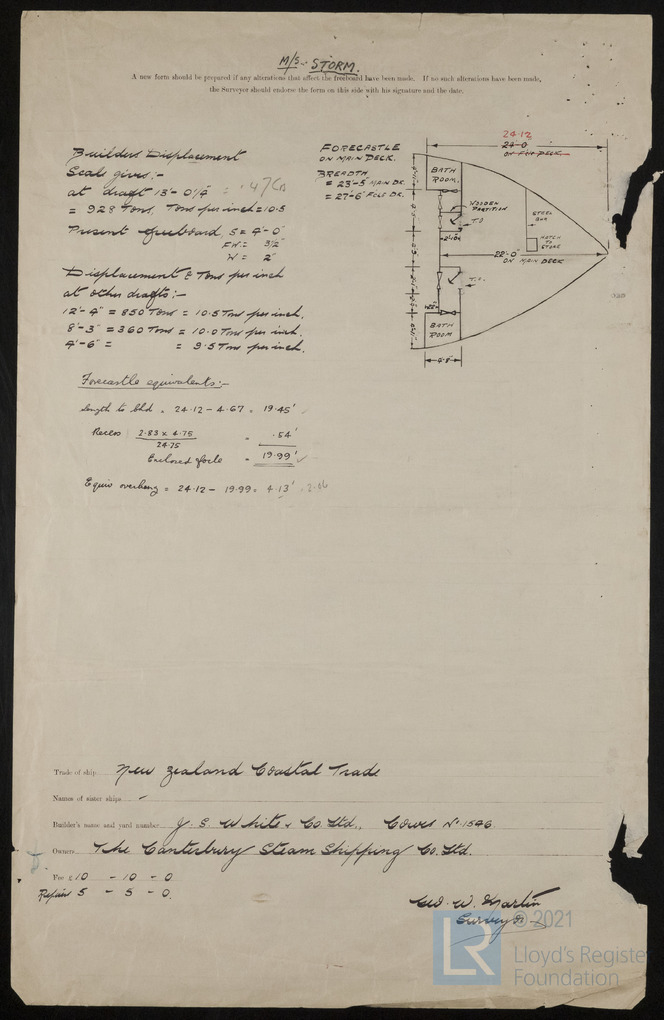 M/S. STORM.
A new form should be prepared if any alterations that affect the freeboard have been made. If no such alterations have been made,
the Surveyor should endorse the form on this side with his signature and the date.
Builders Displacement
Scale gives:-
at draft 13'-0¼" = .47
= 928 Tons, Tons per inch = 10.5
Present freeboard S = 4'-0"
FW = 3½"
W = 2"
Displacement & Tons per inch
at other drafts:-
12'-4" = 850 Tons = 10.5 Tons per inch.
8'-3" = 360 Tons = 10.0 Tons per inch.
4'-6" = = 9.5 Tons per inch.
FORECASTLE
ON MAIN DECK.
BREADTH
= 23'-5 MAIN DK.
= 27'-6" FCLE DK.
24.12
24'-0
ON FCLE DECK
BATH
ROOM.
WOODEN
PARTITION
T.O
STEEL
HATCH
TO
STORE
22'-0"
ON MAIN DECK
BATH
ROOM
4'-8"
Forecastle equivalents:-
length to bhd = 24.12 - 4.67 = 19.45'
Recess 2.83 x 4.75 = .54'
24.75
Enclosed focle = 19.99'
Equiv overhang = 24.12 - 19.99 = 4.13' = 2.06
Trade of ship New Zealand Coastal Trade
Names of sister ships -
Builder's name and yard number J. S. White & Co Ltd., Cowes No. 1546.
Owners The Canterbury Steam Shipping Co. Ltd.
Fee £10 - 10 - 0
Repair 5 - 5 - 0.
Geo. W. Martin
Surveyor
© 2021
LR
Lloyd's Register
Foundation